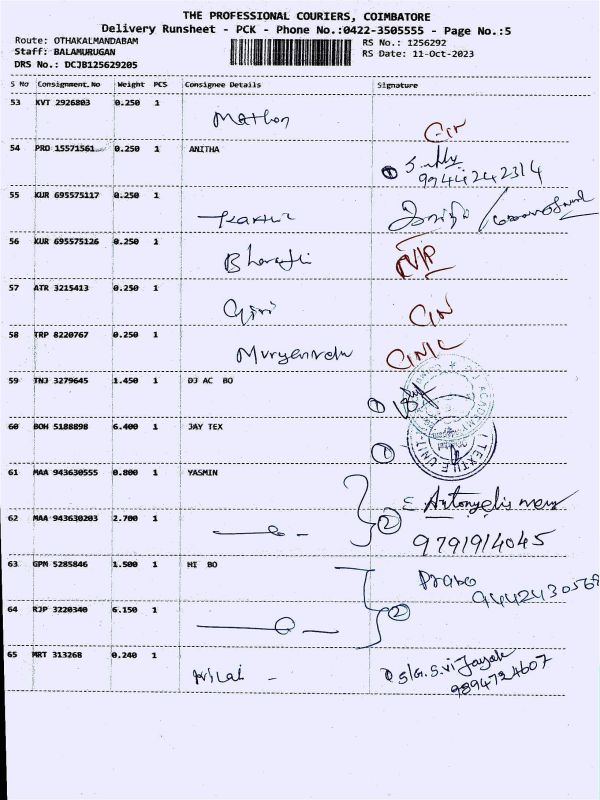 THE PROFESSIONAL COURIERS, COIMBATORE
Delivery Runsheet - PCK - Phone No.:0422-3505555 - Page No.:5
Route: OTHAKALMANDABAM
RS No.: 1256292
Staff: BALAMURUGAN
RS Date: 11-Oct-2023
DRS No.: DCJB125629205
S No Consignment.No Weight PCS Consignee Details Signature
53 KVT 2926803 0.250 1
54 PRO 15571561 0.250 1 ANITHA
9944242314
55 KUR 695575117 0.250 1
56 KUR 695575126 0.250 1 Bharathi
57 ATR 3215413 0.250 1 Giri
58 TRP 8220767 0.250 1
59 TNJ 3279645 1.450 1 DJ AC BO 1
60 BOH 5188898 6.400 1 JAY TEX 1
TEXTILE UNIT
61 MAA 943630555 0.800 1 YASMIN
62 MAA 943630203 2.700 1 2
9791914045
63 GPM 5285846 1.500 1 NI BO Prabo
9442430568
64 RJP 3220340 6.150 1 2
65 MRT 313268 0.240 1 S/G. S. Vijayak
9894724607